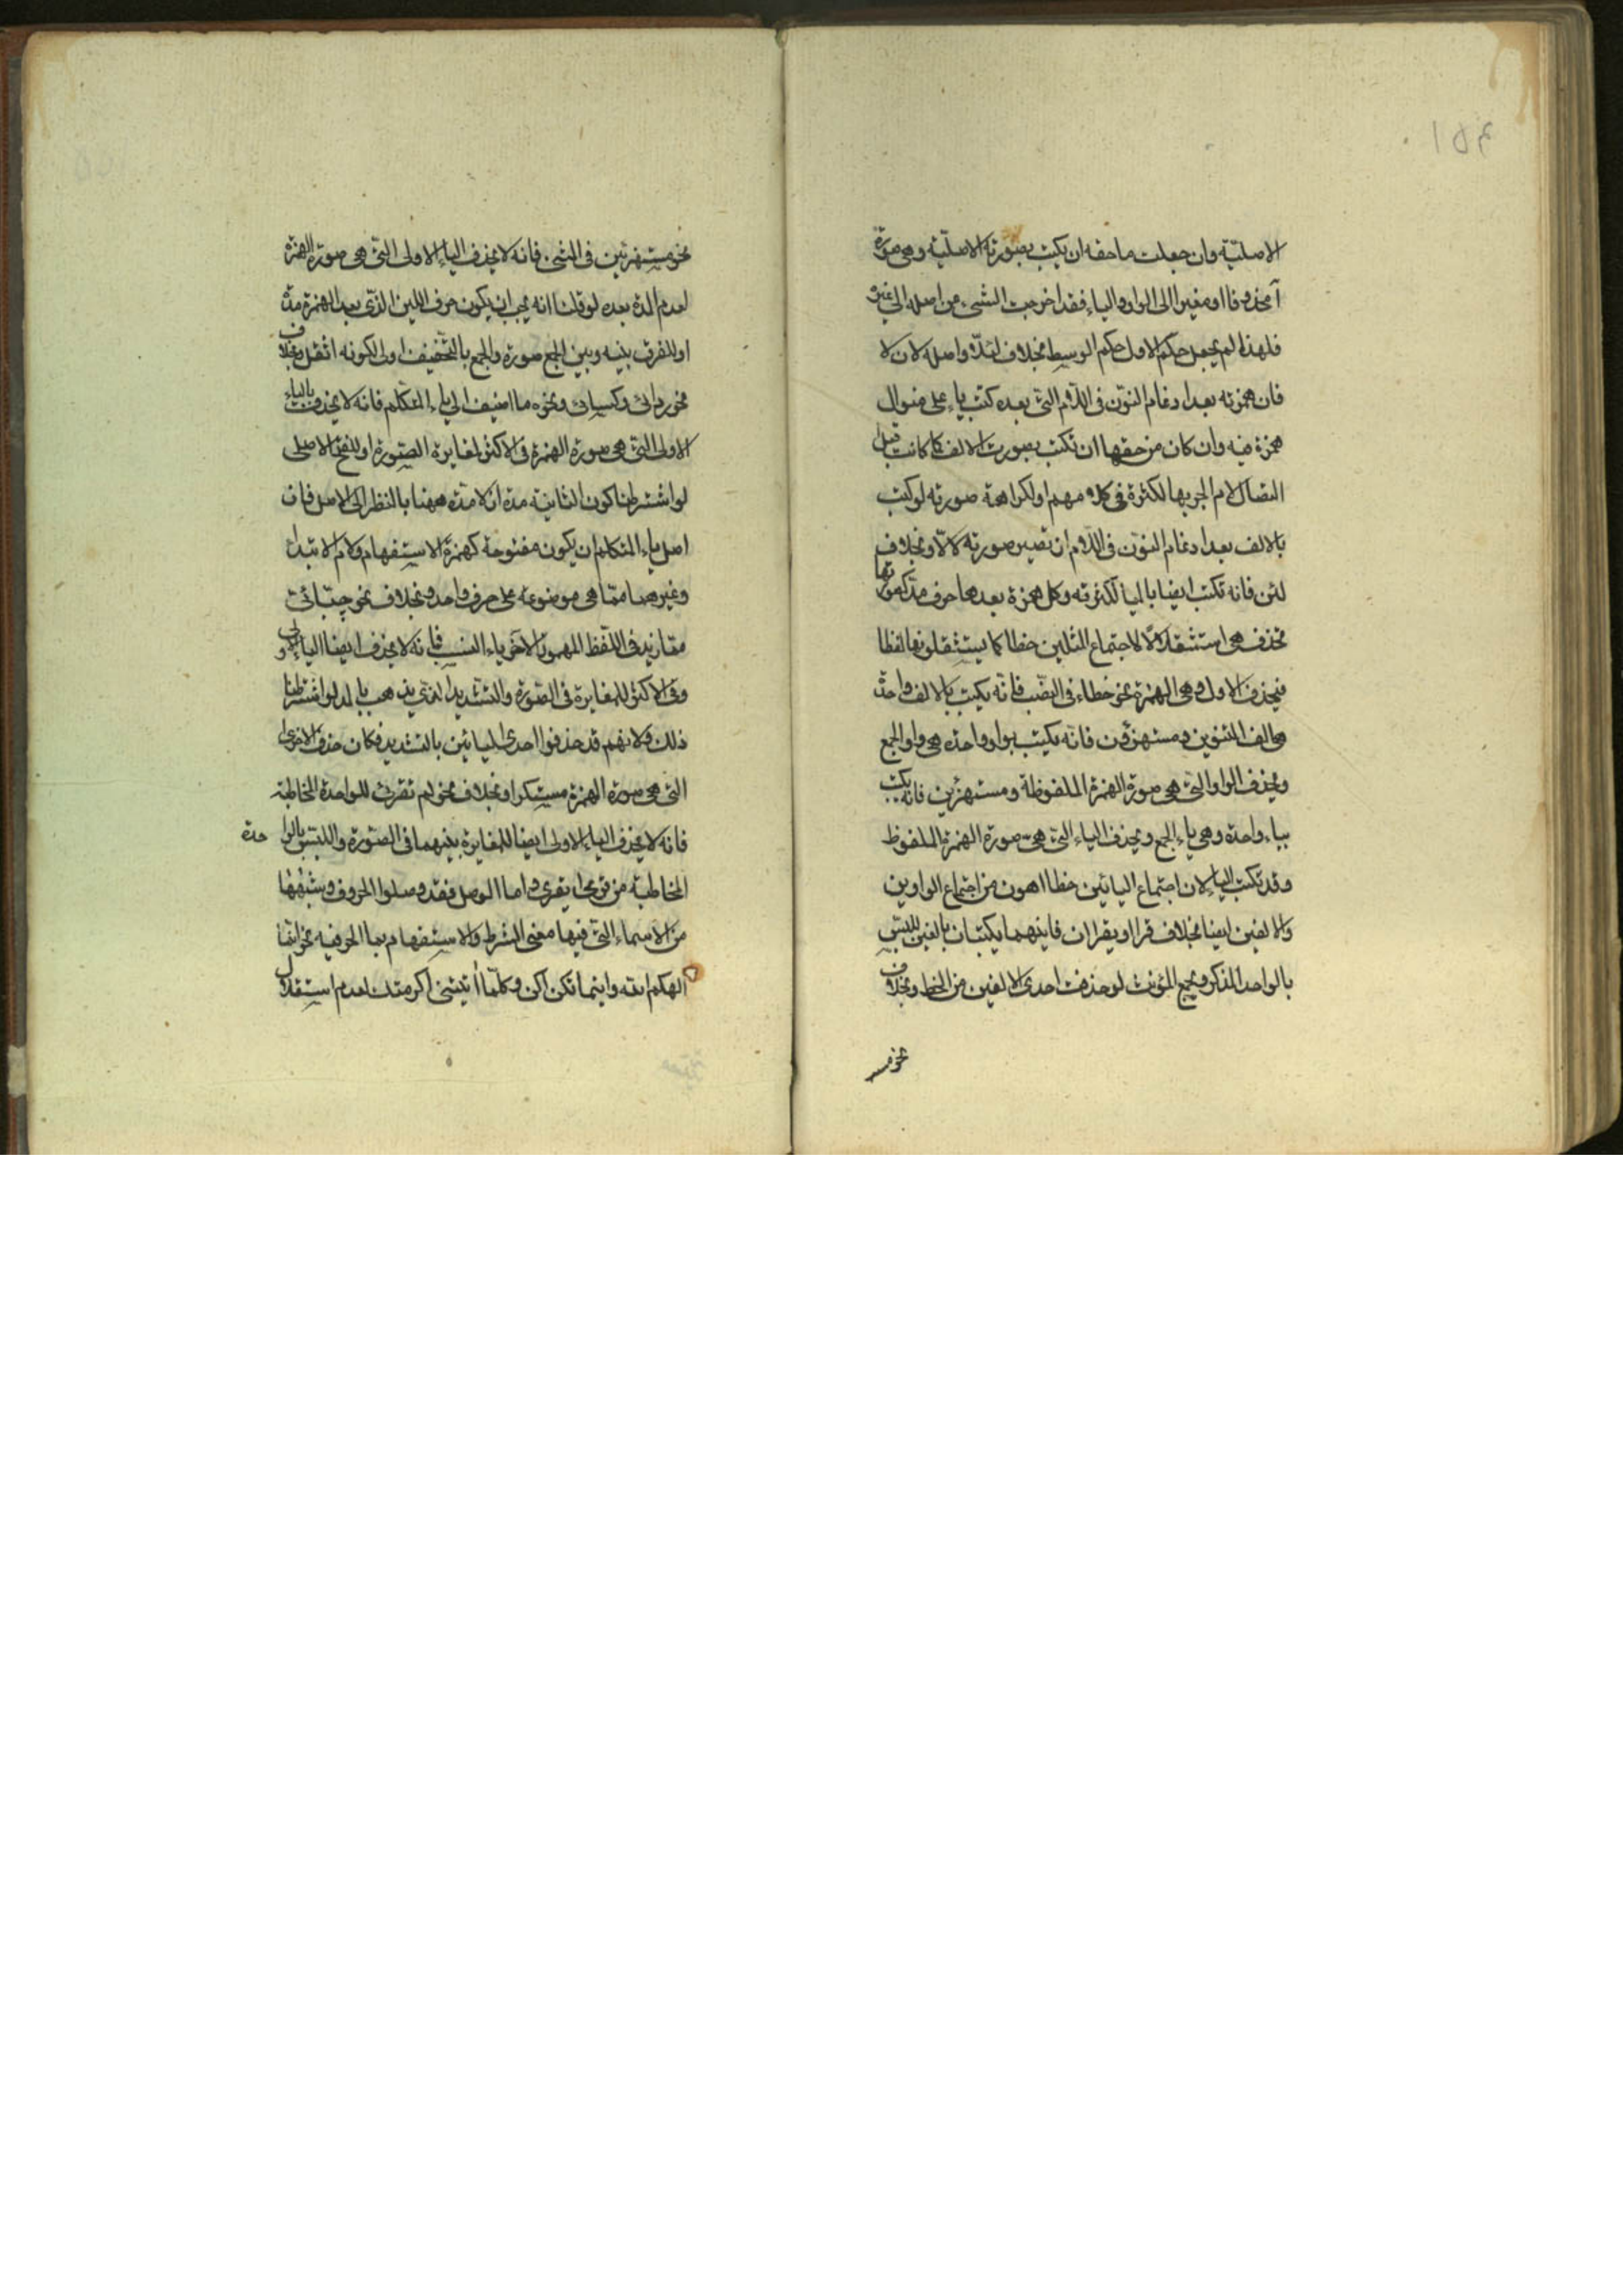 الاصليّة وان جعلت ماحقه ان يكتب بصورته الاصليّة وهى صورة
آ محذوفا او مغيرا الى الواو والياء فقد اخرجت الشىء من اصله الى غيره
فلهذا لم يجعل حكم الاول حكم الوسط بخلاف لئلا واصله لان لا
فان همزته بعد ادغام النون فى اللام التى بعده كتب ياء على منوال
همزة فيه وان كان من حقها ان تكتب بصورت الالف كما كانت قبل
اتصال لام الجر بها لكثرة فى كلامهم او لكراهة صورته لو كتب
بالالف بعد ادغام النون فى اللام ان تصير صورته لالا وبخلاف
لئن فانه تكتب ايضا باليا لكثرته وكل همزة بعدها حرف مد كصورتها
تحذف هى استثقالا لاجتماع المثلين خطا كما يستثقلونها لفظا
فيحذف الاول وهى الهمزة نحو خطاء فى النصب فانه يكتب بالالف واحدة
هى الف التنوين ومستهزؤن فانه يكتب بواو واحدة هى واو الجمع
ويحذف الواو التى هى صورة الهمزة الملفوظة ومستهزئين فانه يكتب
بياء واحدة وهى ياء الجمع ويحذف الياء التى هى صورة الهمزة الملفوظ
وقد تكتب الياء لان اجتماع اليائين خطا اهون من اجتماع الواوين
والالفين ايضا بخلاف قرا او يقران فانهما يكتبان بالفين للبس
بالواحد المذكر وبجمع المؤنث لو حذفت احدى الالفين من الخط وبخلاف
نحو مس
نحو مستهزئين فى المثنى فانه لا يحذف الياء الاولى التى هى صورة الهمزة
لعدم المدة بعده لو قلت انه يجب ان يكون حرف اللين الذى بعد الهمزة مدة
او للفرق بينه وبين الجمع صورة والجمع بالتخفيف اولى لكونه اثقل وبخلاف
نحو ردائى وكسيائى ونحوه ما اضيف الى ياء المتكلم فانه لا يحذف الياء
الاولى التى هى صورة الهمزة فى الاكثر لمغايرة الصورة او للفتح الاصلى
لو اشترطنا كون الثانية مدة اذ لا مدة ههنا بالنظر الى الاصل فان
اصل ياء المتكلم ان يكون مفتوحة كهمزة الاستفهام ولام الابتدا
وغيرهما مما هى موضوعة على حرف واحد وبخلاف نحو حبائى
مما زيد فى اللفظ المهموز الآخر ياء النسب فانه لا يحذف ايضا الياء الاولى
وفى الاكثر للمغايرة فى الصورة والتشديد الذى يذهب بالمد لو اشترطنا
ذلك ولانهم قد حذفوا احدى اليائين بالتشديد فكان حذف الاخرى
التى هى صورة الهمزة مستكرا وبخلاف نحو لم تقرئى للواحدة المخاطبة
فانه لا يحذف الياء الاولى ايضا للمغايرة بينهما فى الصورة واللبس بالوا حدة
المخاطبة من قرى يقرى واما الوصل فقد وصلوا الحروف وشبهها
من الاسماء التى فيها معنى الشرط والاستفهام بما الحرفية نحو انما
الهكم اله واينما تكن اكن وكلما اتيتنى اكرمتك لعدم استقلال